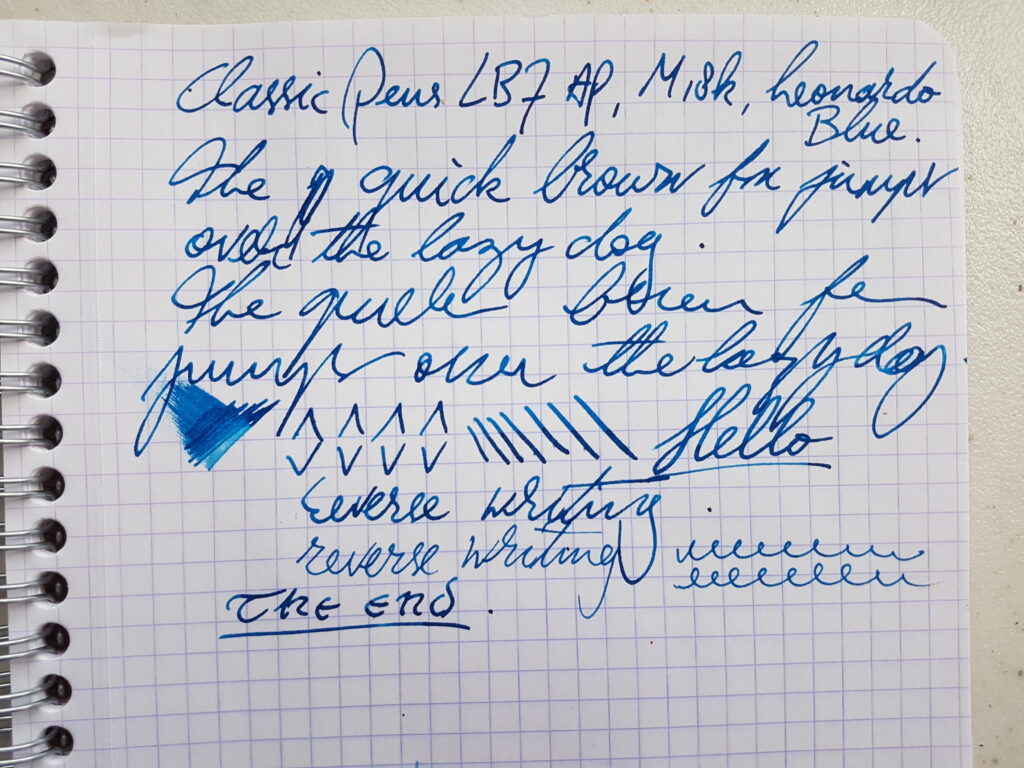 Classic Pens LB7 AP, M, 18k, Leonardo
Blue.
The quick brown fox jumps
over the lazy dog.
The quick brown fox
jumps over the lazy dog.
Hello
reverse writing.
reverse writing
THE END.